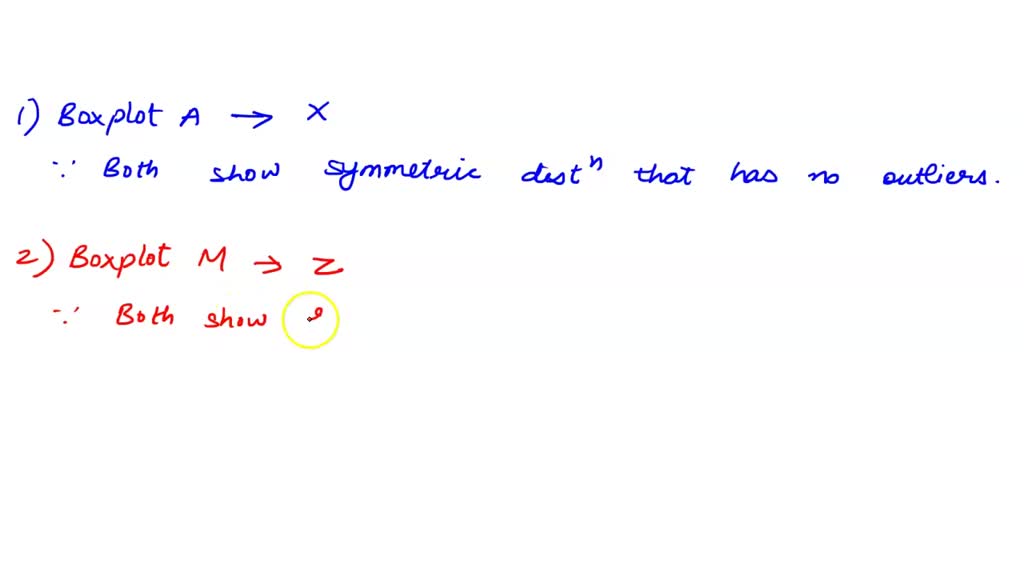 1) Boxplot A → X
∵ Both show symmetric distⁿ that has no outliers.
2) Boxplot M → Z
∵ Both show